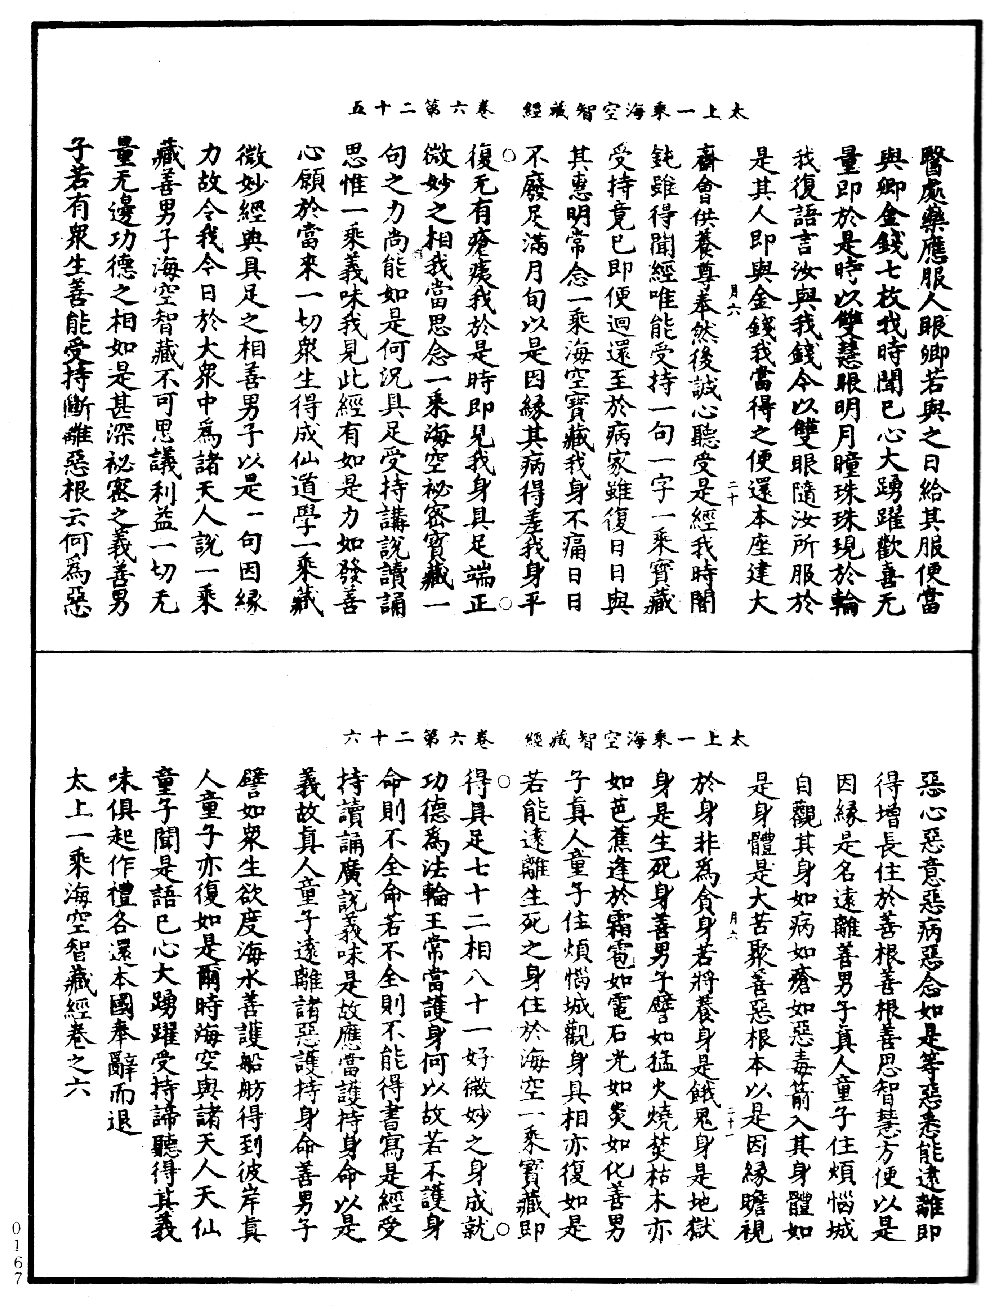 太上一乘海空智藏經　卷六第二十五
醫處藥應服人眼卿若與之日給其服便當
與卿金錢七枚我時聞已心大踴躍歡喜无
量即於是時以雙慧眼明月瞳珠珠現於輪
我復語言汝與我錢今以雙眼隨汝所服於
是其人即與金錢我當得之便還本座建大
月六
二十
齋會供養尊奉然後誠心聽受是經我時闇
鈍雖得聞經唯能受持一句一字一乘寶藏
受持竟已即便迴還至於病家雖復日日與
其惠明常念一乘海空寶藏我身不痛日日
不廢足滿月旬以是因緣其病得差我身平
復无有瘡痍我於是時即見我身具足端正
微妙之相我當思念一乘海空祕密寶藏一
句之力尚能如是何況具足受持講說讀誦
思惟一乘義味我見此經有如是力如發善
心願於當來一切眾生得成仙道學一乘藏
微妙經典具足之相善男子以是一句因緣
力故令我今日於大眾中為諸天人說一乘
藏善男子海空智藏不可思議利益一切无
量无邊功德之相如是甚深祕密之義善男
子若有眾生善能受持斷離惡根云何為惡
太上一乘海空智藏經　卷六第二十六
惡心惡意惡病惡念如是等惡悉能遠離即
得增長住於善根善根善思智慧方便以是
因緣是名遠離善男子真人童子住煩惱城
自觀其身如病如瘡如惡毒箭入其身體如
是身體是大苦聚善惡根本以是因緣瞻視
月六
二十一
於身非為貪身若將養身是餓鬼身是地獄
身是生死身善男子譬如猛火燒焚枯木亦
如芭蕉逢於霜雹如電石光如炎如化善男
子真人童子住煩惱城觀身具相亦復如是
若能遠離生死之身住於海空一乘寶藏即
得具足七十二相八十一好微妙之身成就
功德為法輪王常當護身何以故若不護身
命則不全命若不全則不能得書寫是經受
持讀誦廣說義味是故應當護持身命以是
義故真人童子遠離諸惡護持身命善男子
譬如眾生欲度海水善護船舫得到彼岸真
人童子亦復如是爾時海空與諸天人天仙
童子聞是語已心大踴躍受持諦聽得其義
味俱起作禮各還本國奉辭而退
太上一乘海空智藏經卷之六
0167